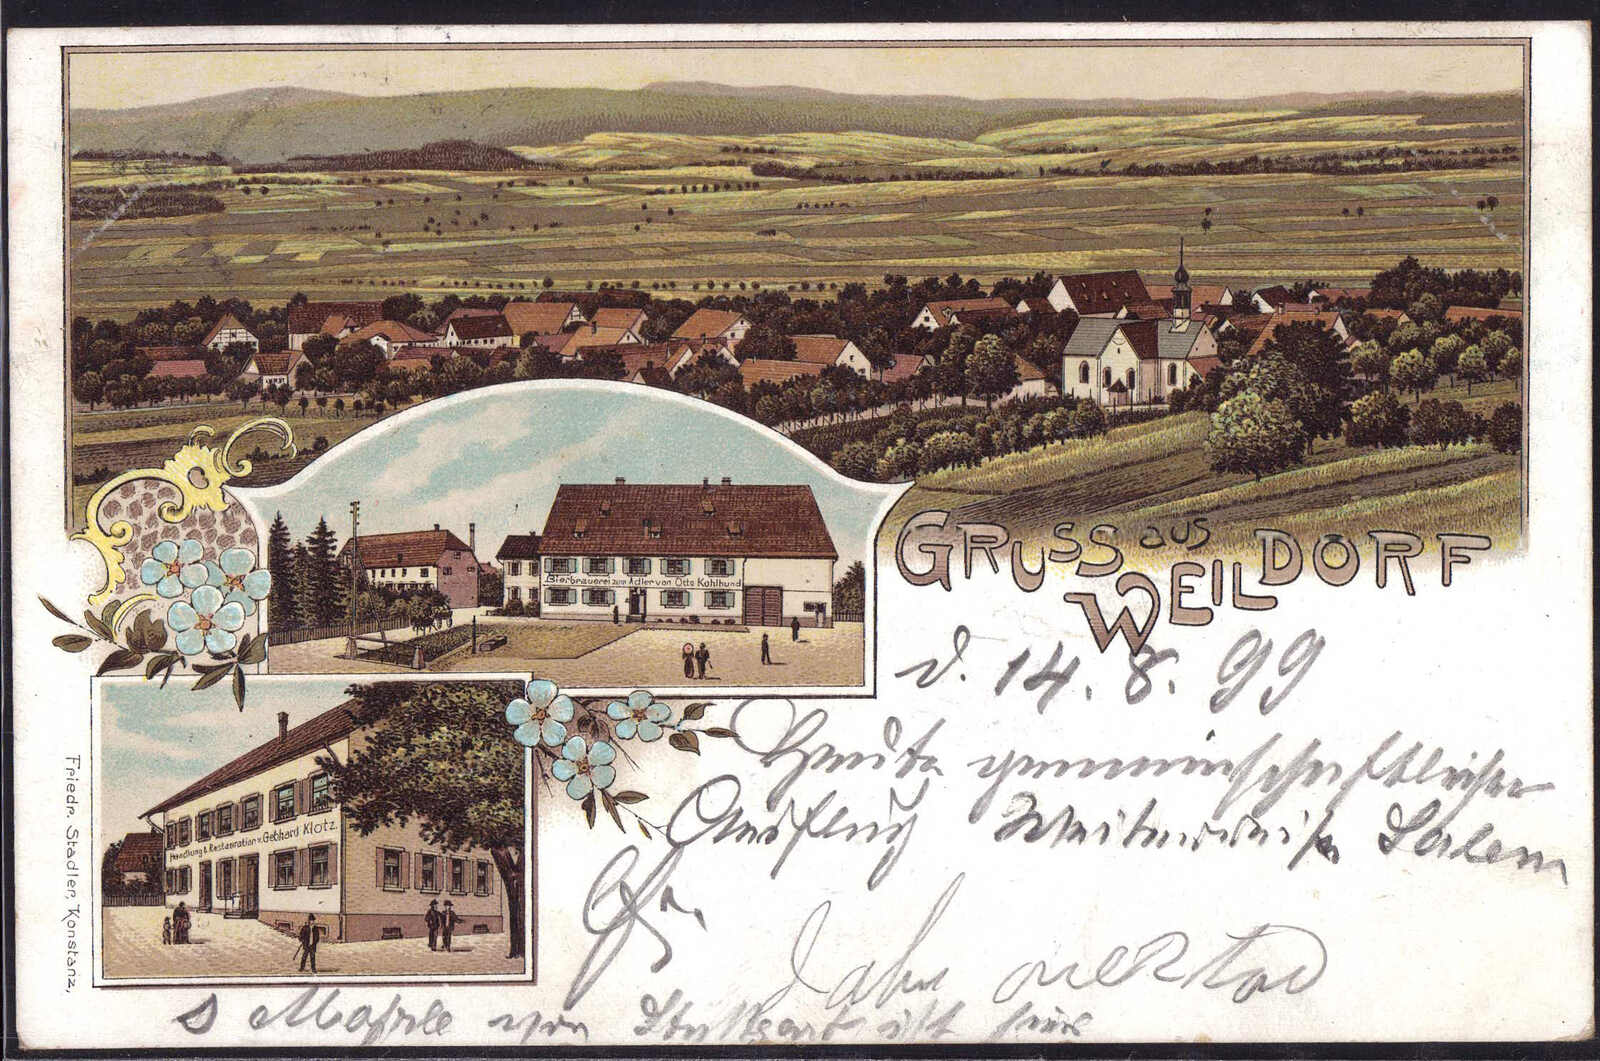 GRUSS aus
WEILDORF
Bierbrauerei zum Adler von Otto Kohlhund
Handlung & Restauration v. Gebhard Klotz.
Friedr. Stadler, Konstanz,
d. 14. 8. 99
Heute gemeinschaftlicher
Ausflug Salem
Gr.
von Stuttgart ist hier